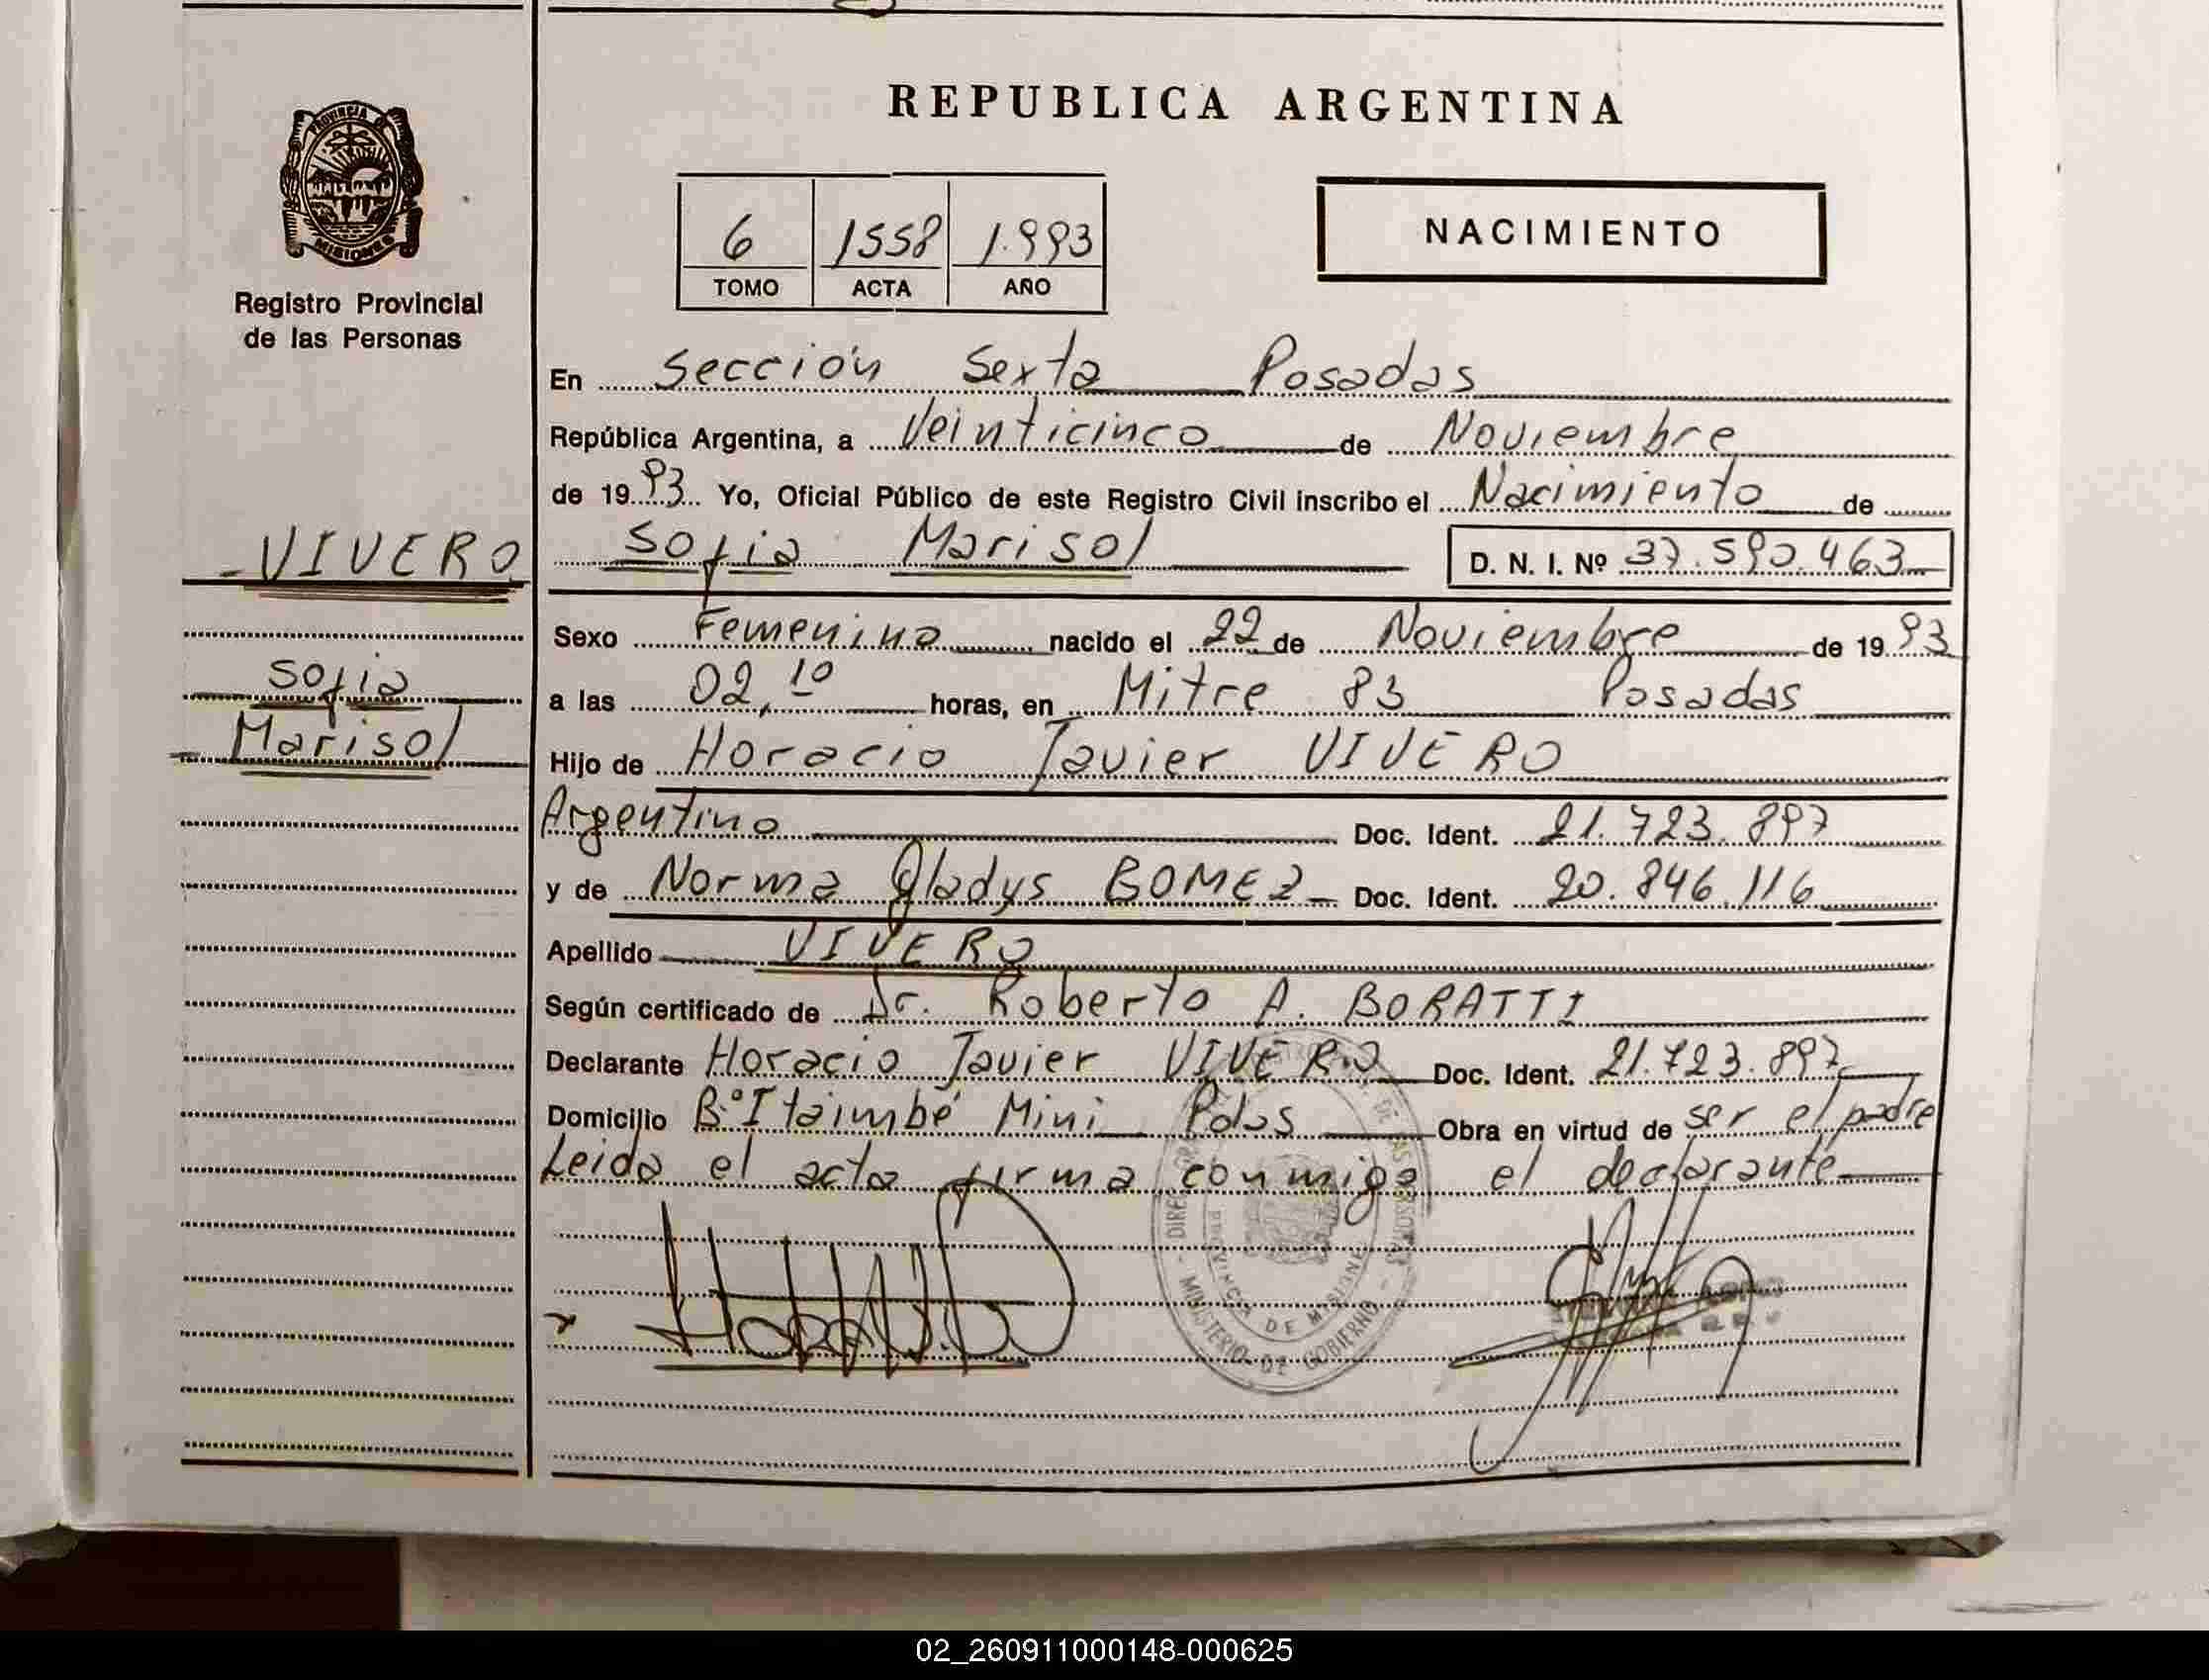 REPUBLICA ARGENTINA
PROVINCIA DE MISIONES
Registro Provincial
de las Personas
6 1558 1.993
TOMO ACTA AÑO
NACIMIENTO
En Sección Sexta Posadas
República Argentina, a Veinticinco de Noviembre
de 1993 Yo, Oficial Público de este Registro Civil inscribo el Nacimiento de
VIVERO
Sofia Marisol D. N. I. Nº 37.590.463
Sexo Femenino nacido el 22 de Noviembre de 1993
Sofia
Marisol
a las 02,10 horas, en Mitre 83 Posadas
Hijo de Horacio Javier VIVERO
Argentino Doc. Ident. 21.723.897
y de Norma Gladys GOMEZ Doc. Ident. 20.846.116
Apellido VIVERO
Según certificado de Dr. Roberto A. BORATTI
Declarante Horacio Javier VIVERO Doc. Ident. 21.723.897
Domicilio B.º Itaimbé Mini Pdas Obra en virtud de ser el padre
Leida el acta firma conmigo el declarante
PROVINCIA DE MISIONES
MINISTERIO DE GOBIERNO
02_260911000148-000625